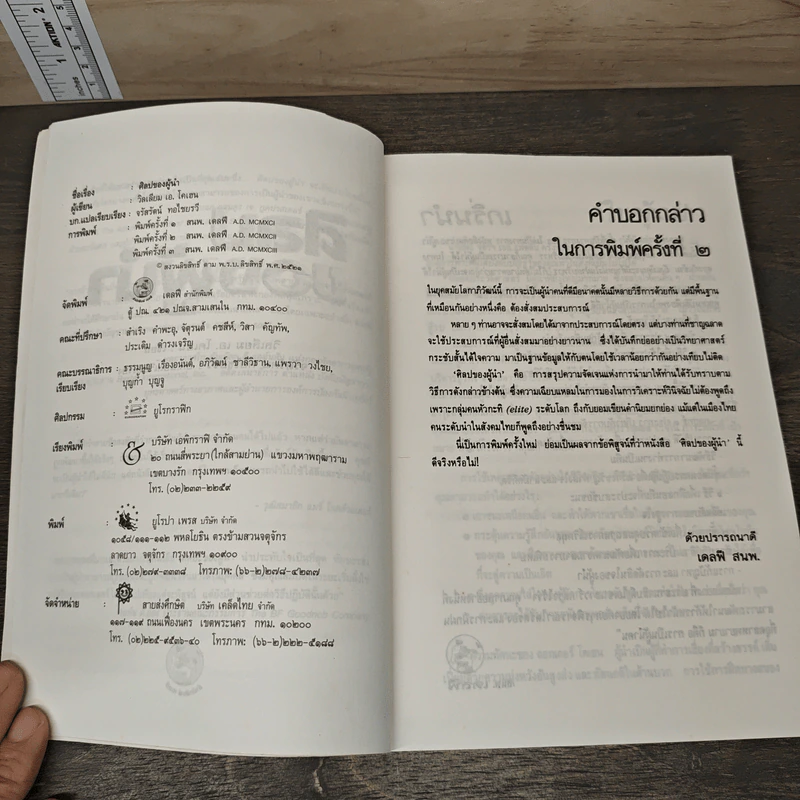 ชื่อเรื่อง : ศิลปของผู้นำ
ผู้เขียน : วิลเลียม เอ. โคเฮน
บก.แปลเรียบเรียง : จรัสรัตน์ ทอไชยรวี
การพิมพ์ : พิมพ์ครั้งที่ ๑ สนพ. เดลฟี A.D. MCMXCI
พิมพ์ครั้งที่ ๒ สนพ. เดลฟี A.D. MCMXCII
พิมพ์ครั้งที่ ๓ สนพ. เดลฟี A.D. MCMXCIII
© สงวนลิขสิทธิ์ ตาม พ.ร.บ.ลิขสิทธิ์ พ.ศ.๒๕๒๑
จัดพิมพ์ : เดลฟี สำนักพิมพ์
ตู้ ปณ. ๔๒๑ ปณจ.สามเสนใน กทม. ๑๐๔๐๐
คณะที่ปรึกษา : สำเริง คำพะอุ, จัตุรนต์ คชสีห์, วิสา คัญทัพ,
ประเดิม ดำรงเจริญ
คณะบรรณาธิการ : ธรรมนูญ เรืองอนันต์, อภิวัฒน์ ชาลีวิธาน, แพรวา วงไชย,
เรียบเรียง บุญก้ำ บุญจู
ศิลปกรรม : ยูโรกราฟิก
เรียงพิมพ์ : บริษัท เอพิกราฟิ จำกัด
๒๐ ถนนสี่พระยา(ใกล้สามย่าน) แขวงมหาพฤฒาราม
เขตบางรัก กรุงเทพฯ ๑๐๕๐๐
โทร. (๐๒)๒๓๓-๒๒๕๙
พิมพ์ : ยูโรปา เพรส บริษัท จำกัด
๑๐๕๘/๑๑๑-๑๑๒ พหลโยธิน ตรงข้ามสวนจตุจักร
ลาดยาว จตุจักร กรุงเทพฯ ๑๐๙๐๐
โทร. (๐๒)๒๗๙-๓๓๓๘ โทรภาพ: (๖๖-๒)๒๗๘-๔๒๓๗
จัดจำหน่าย : สายส่งศึกษิต บริษัท เคล็ดไทย จำกัด
๑๑๗-๑๑๙ ถนนเฟื่องนคร เขตพระนคร กทม. ๑๐๒๐๐
โทร. (๐๒)๒๒๕-๙๕๓๖-๔๐ โทรภาพ: (๖๖-๒)๒๒๒-๕๑๘๘
คำบอกกล่าว
ในการพิมพ์ครั้งที่ ๒
ในยุคสมัยโลกาภิวัฒน์นี้ การจะเป็นผู้นำคนที่ดีมีอนาคตนั้นมีหลายวิธีการด้วยกัน แต่มีพื้นฐาน
ที่เหมือนกันอย่างหนึ่งคือ ต้องสั่งสมประสบการณ์
หลาย ๆ ท่านอาจจะสั่งสมโดยได้มาจากประสบการณ์โดยตรง แต่บางท่านที่ชาญฉลาด
จะใช้ประสบการณ์ที่ผู้อื่นสั่งสมมาอย่างยาวนาน ซึ่งได้บันทึกย่ออย่างเป็นวิทยาศาสตร์
กระชับสั้นได้ใจความ มาเป็นฐานข้อมูลให้กับตนโดยใช้เวลาน้อยกว่ากันอย่างเทียบไม่ติด
'ศิลปของผู้นำ' คือ การสรุปความจัดเจนแห่งการนำมาให้ท่านได้รับทราบตาม
วิธีการดังกล่าวข้างต้น ซึ่งความเฉียบแหลมในการมองในการวิเคราะห์วินิจฉัยไม่ต้องพูดถึง
เพราะกลุ่มคนหัวกะทิ (elite) ระดับโลก ถึงกับยอมเขียนคำนิยมยกย่อง แม้แต่ในเมืองไทย
คนระดับนำในสังคมไทยก็พูดถึงอย่างชื่นชม
นี่เป็นการพิมพ์ครั้งใหม่ ย่อมเป็นผลจากข้อพิสูจน์ที่ว่าหนังสือ 'ศิลปของผู้นำ' นี้
ดีจริงหรือไม่!
ด้วยปรารถนาดี
เดลฟี สนพ.